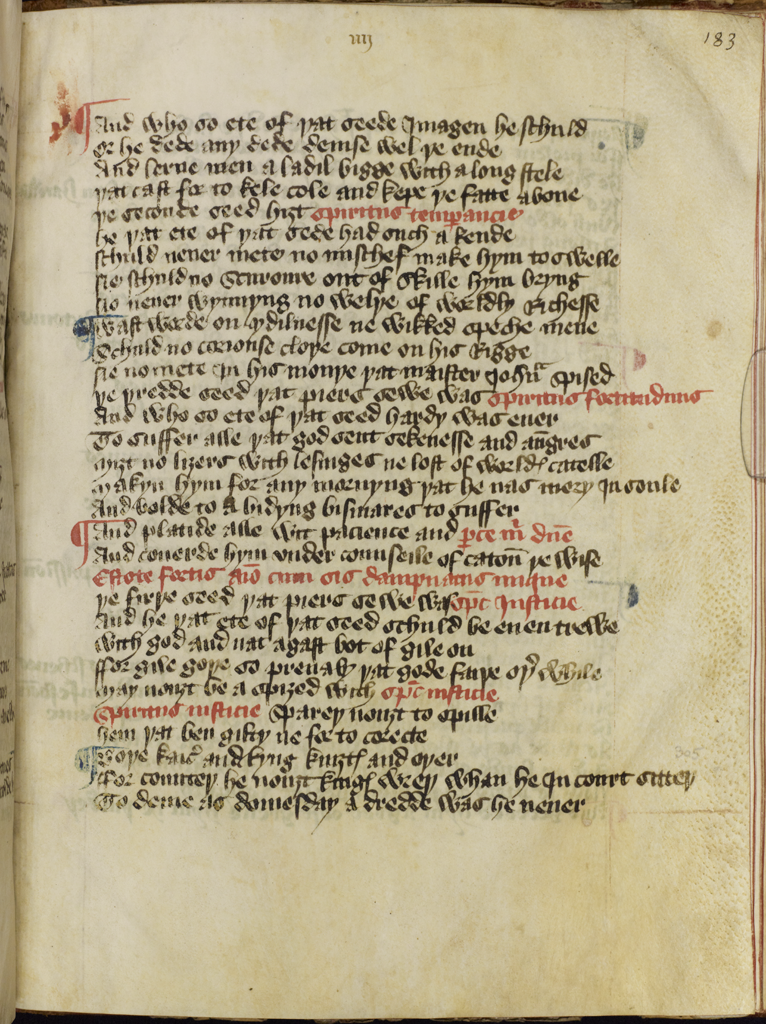 iiij
183
And who so ete of yat seede Imagen he schuld
or he dede any dede deuise wel ye ende
And lerne men a ladil bigge with a long stele
yat cast for to kele cole and kepe ye fatte aboue
ye seconde seed hizt spiritus temperancie
he yat ete of yat sede had such a kende
schuld neuer mete no mischef make hym to swelle
ne schuld no Scurowre out of skille hym bryng
no neuer wynnyng no welye of worldly Richesse
wast worde on ydilnesse ne wikked speche meue
Schuld no coriouse cloye come on his Rigge
ne no mete In his mouye yat maister Johnͫ spised
ye yredde seed yat piers sewe was spiritus fortitudinis
And who so ete of yat seed hardy was euer
To suffer alle yat god sent sekenesse and angres
myzt no lizers with lesinges ne lost of worldͭ catelle
makyn hym for any mornyng yat he nas mery In soule
And bolde to a bidyng bismares to suffer
And plaude alle wit pacience and pͨce mͥ dnͤe
And couerde hym vnder counseile of catoun ye wise
Estote fortis aīo cum sis dampnatus inique
ye firye seed yat piers sewe was spͨ Iusticie
And he yat ete of yat seed schuld be euen trewe
with god and nat agast bot of gile on
ffor gile goye so preualy yat gode faiye oyͬ while
may nouzt be a spized with spͨ iusticie
Spiritus iusticie Sparey nouzt to spille
hem yat ben gilty ne for to corecte
Boye kaicͬ and kyng knizt and oyer
For countey he nouzt kingͭ wrey whan he In court sittey
To deme as domesday a dredde was he neuer